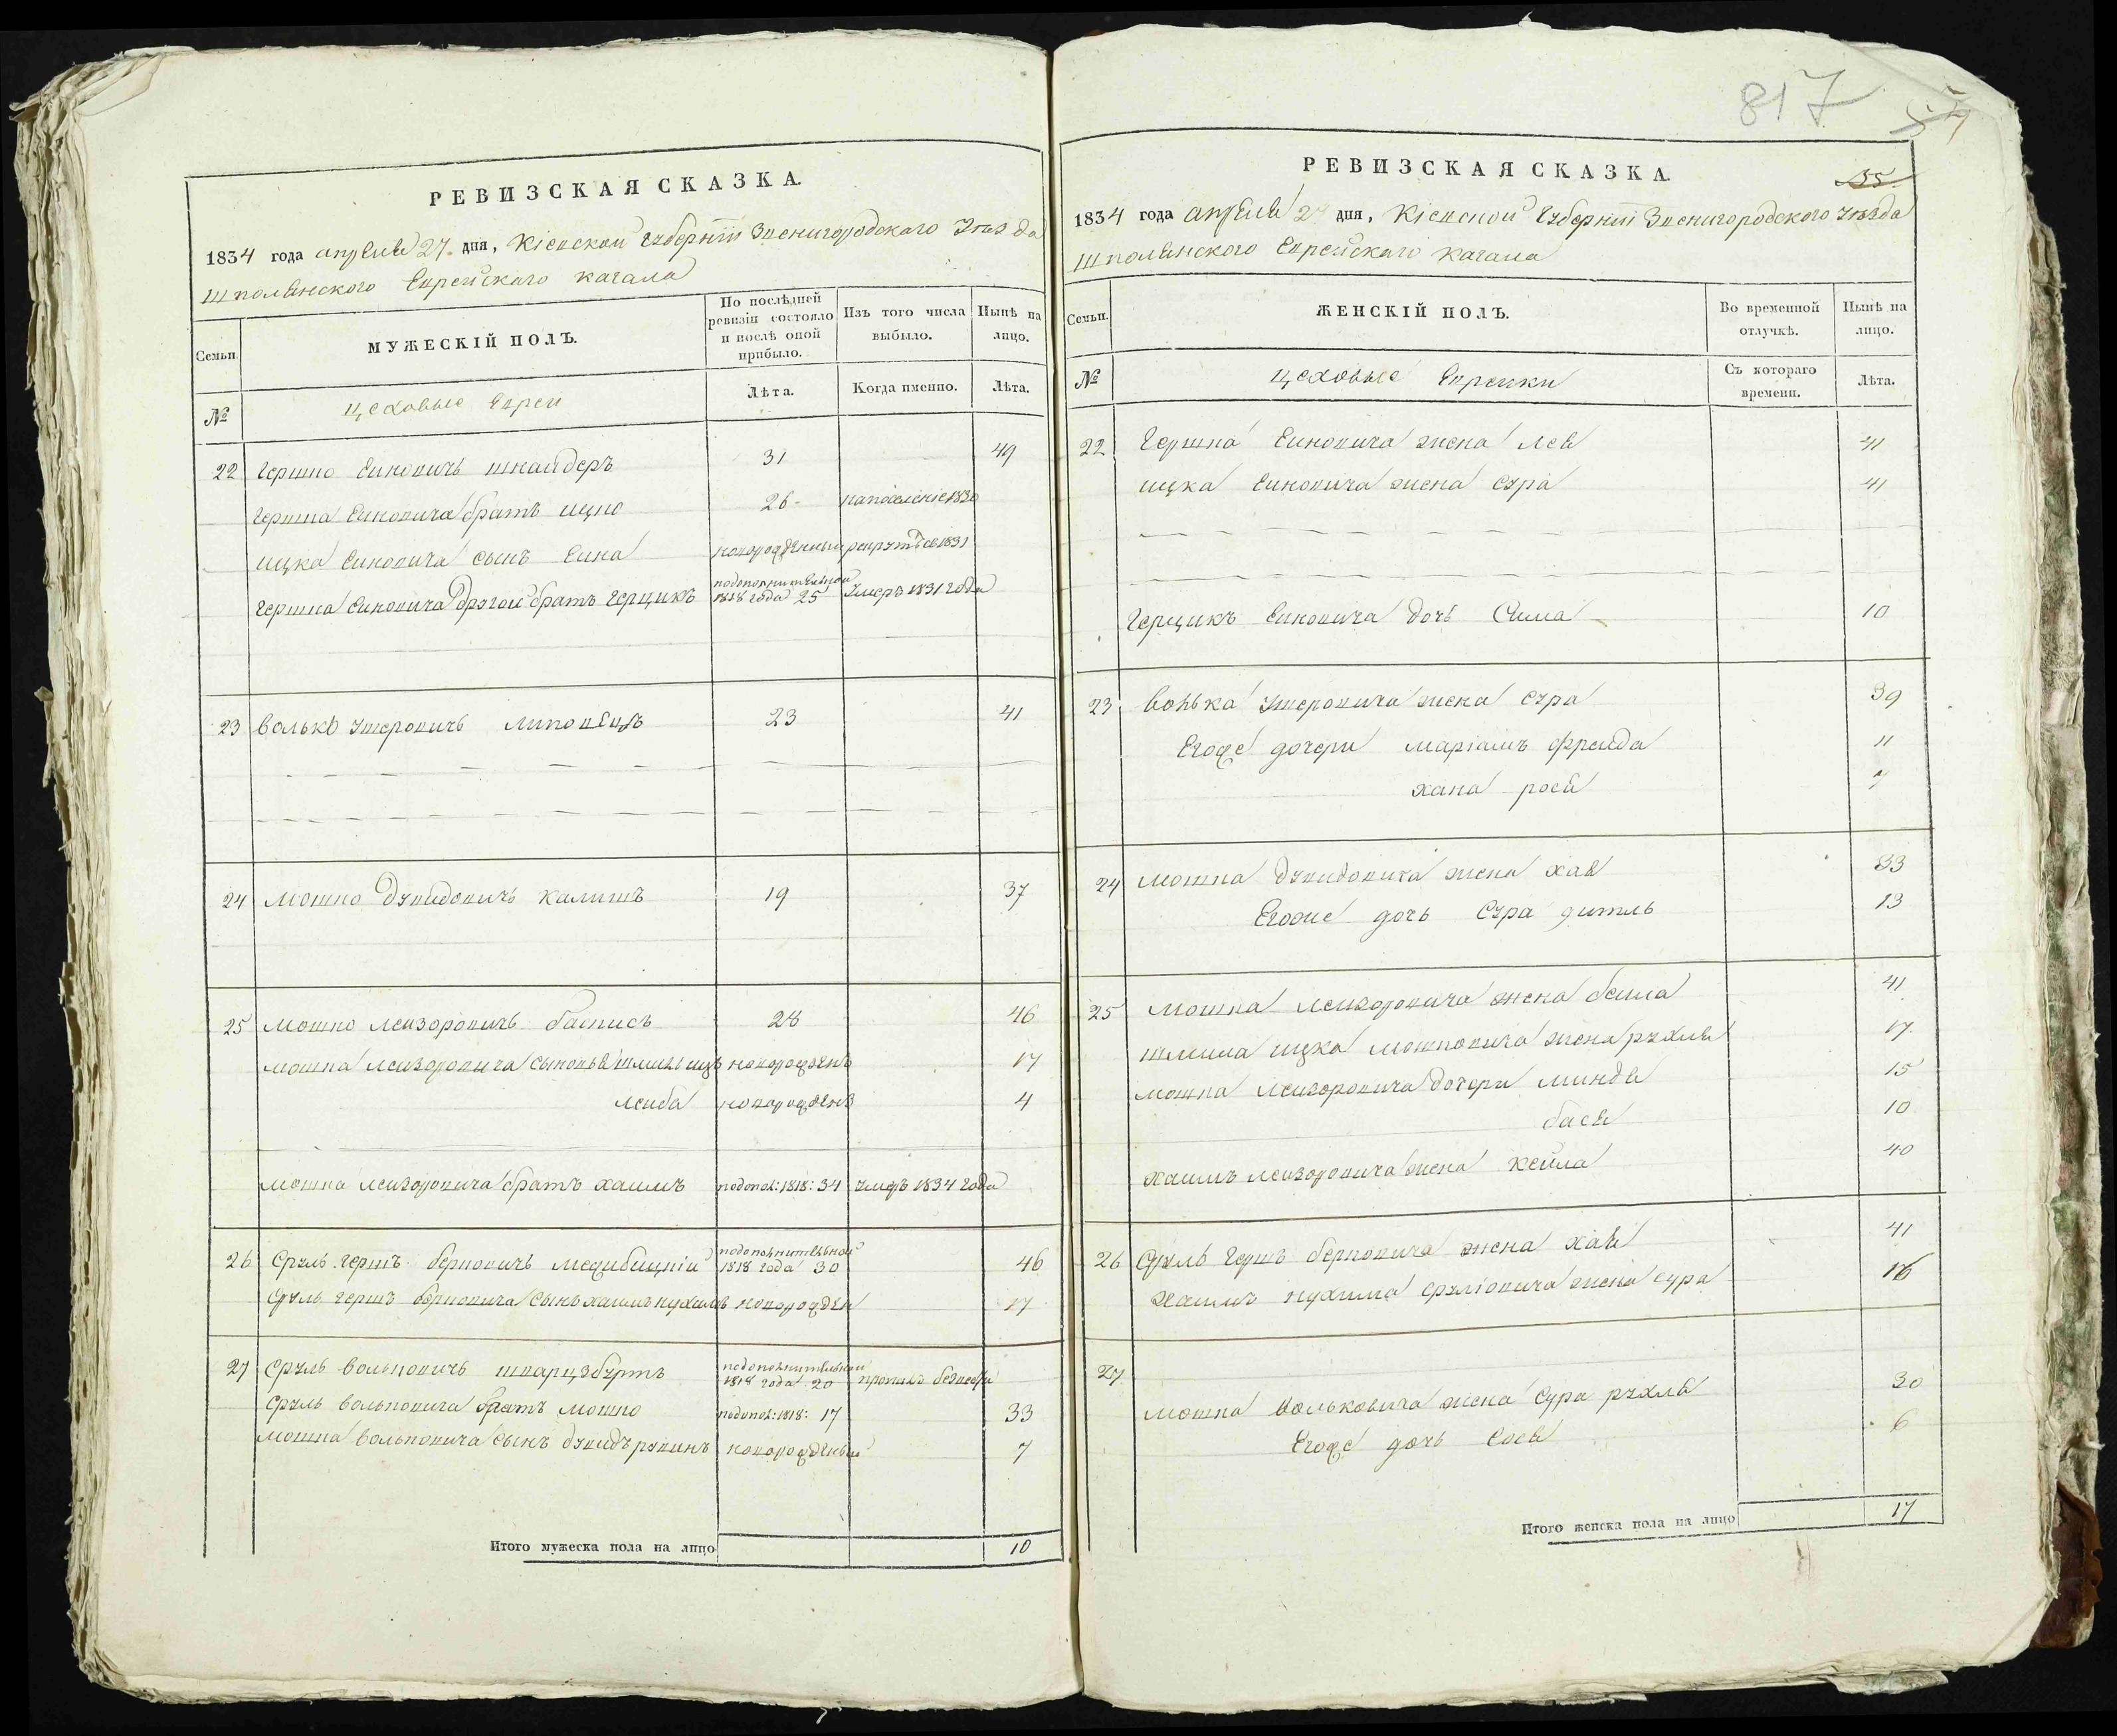 РЕВИЗСКАЯ СКАЗКА.
1834 года апреля 27. дня, Кіевской Губерніи Звенигородского Уезда
Шполянского Еврейскаго кагала
Семьи.
МУЖЕСКІЙ ПОЛЪ.
По послѣдней ревизіи состояло и послѣ оной прибыло.
Изъ того числа выбыло.
Нынѣ на лицо.
№
цеховые Евреи
Лѣта.
Когда именно.
Лѣта.
22 Гершко Еиновичь шнаидеръ 31 49
Гершка Еиновича братъ ицко 26 1830
ицка Еиновича сынъ Еина новорожденныи 1831
Гершка Еиновича другои братъ Герцикъ подополнительнои 1818 года 25 умеръ 1831 года
23 Волько Умеровичь липовецъ 23 41
24 мошко дувидовичь калишъ 19 37
25 мошко леизоровичь 28 46
мошка леизоровича сыновья новорожденъ 17
леиба новорожденъ 4
мошка леизоровича братъ хаимъ подопол: 1818: 34 умеръ 1834 года
26 Сруль Гершъ берковичь межибицкіи подополнительнои 1818 года 30 46
Сруль Гершъ берковича сынъ хаимъ нухимъ новорожден 17
27 Сруль вольковичь шварцбуртъ подополнительнои 1818 года 20 пропалъ
Сруль вольковича братъ мошко подопол: 1818: 17 33
мошка вольковича сынъ дувидъ рувинъ новорожденыи 7
Итого мужеска пола на лицо 10
817
55.
РЕВИЗСКАЯ СКАЗКА.
1834 года апреля 27 дня, Кіевской Губерніи Звенигородского уезда
Шполянского Еврейскаго кагала
Семьи.
ЖЕНСКІЙ ПОЛЪ.
Во временной отлучкѣ.
Нынѣ на лицо.
№
цеховые Евреики
Съ котораго времени.
Лѣта.
22 Гершка Еиновича жена Лея 41
ицка Еиновича жена сура 41
Герцикъ Еиновича дочь Сима 10
23 Волька Умеровича жена сура 39
Егоже дочери маріамъ фреида 11
хана рося 7
24 мошка дувидовича жена хая 33
Егоже дочь Сура дитль 13
25 мошка леизоровича жена беила 41
шмила ицка мошковича жена рухля 17
мошка леизоровича дочери миндя 15
бася 10
хаимъ леизоровича жена кеила 40
26 Сруль Гершъ берковича жена хая 41
Хаимъ нухима срулiовича жена сура 16
27
мошка Вольковича жена Сура рухля 30
Егоже дочь Сося 6
Итого женска пола на лицо 17